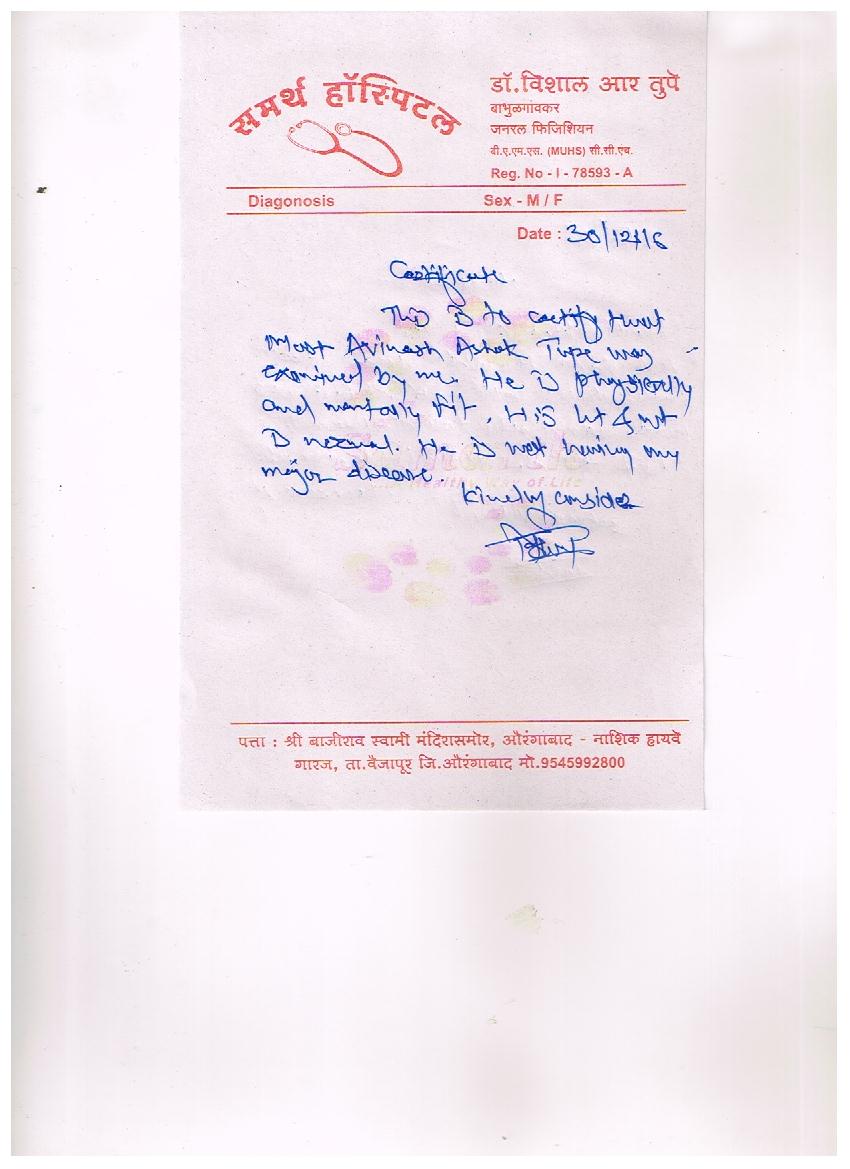 समर्थ हॉस्पिटल
डॉ.विशाल आर तुपे
बाभुळगांवकर
जनरल फिजिशियन
बी.ए.एम.एस. (MUHS) सी.सी.एच.
Reg. No - I - 78593 - A
Diagonosis Sex - M / F
Date : 30/12/16
Certificate
This is to certify that
Mast Avinash Ashok Tupe was
examined by me. He is physically
and mentally fit. His ht & wt
is normal. He is not having any
major disease.
Kindly consider
पत्ता : श्री बाजीराव स्वामी मंदिरासमोर, औरंगाबाद - नाशिक हायवे
गारज, ता.वैजापूर जि.औरंगाबाद मो.9545992800